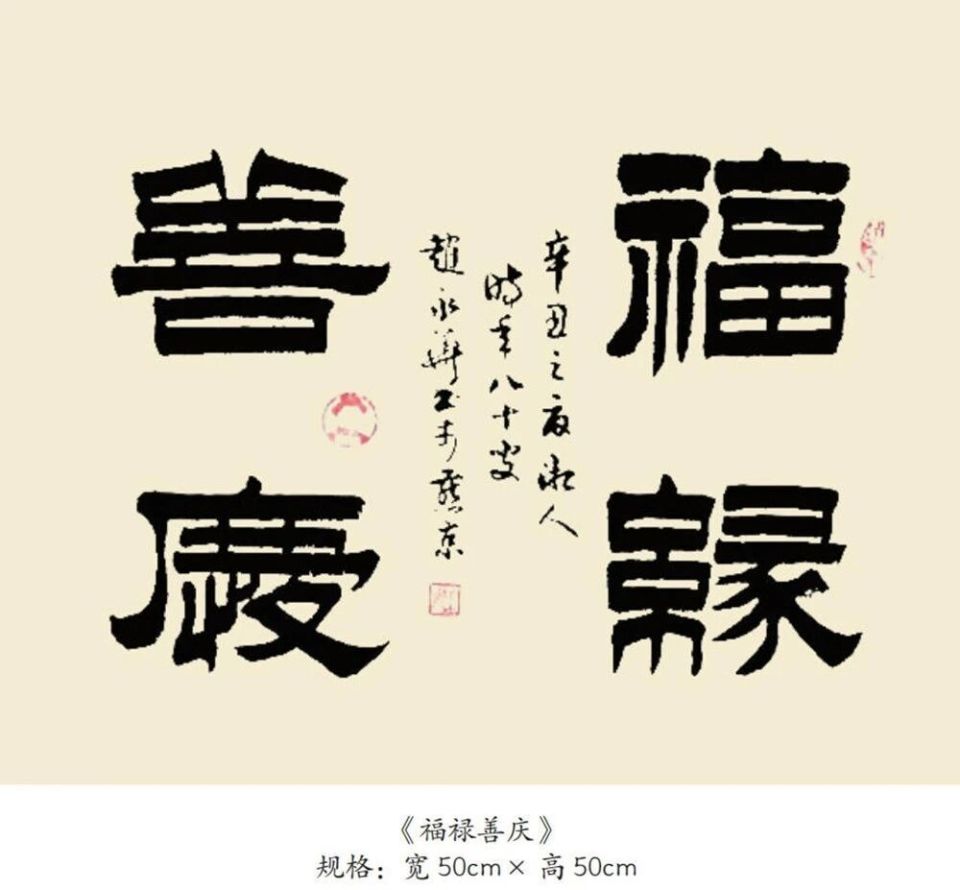 福緣
善慶
辛丑之夏湘人
時年八十叟
趙永華书于燕京
《福禄善庆》
规格：宽50cm× 高50cm